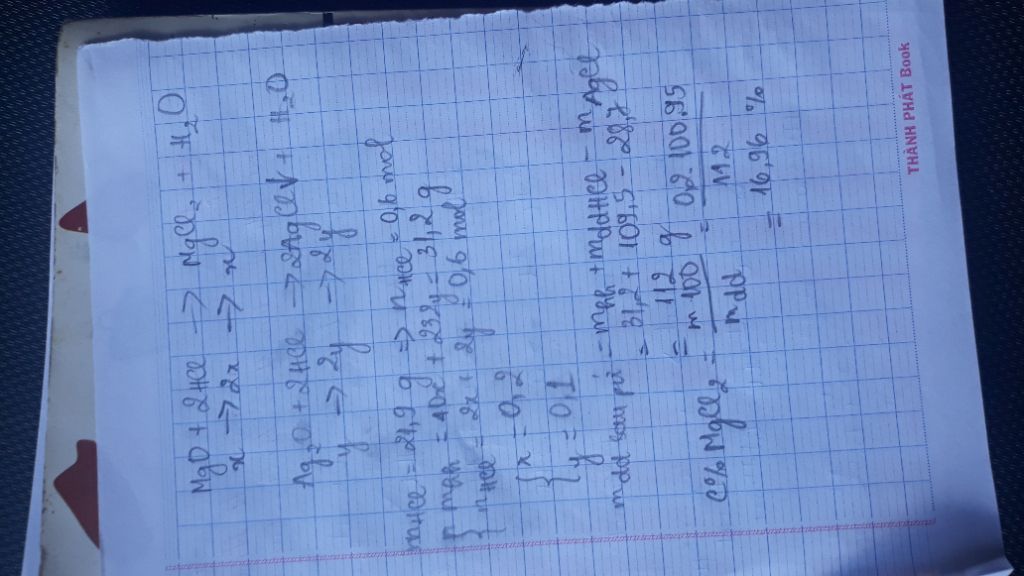 MgO + 2HCl → MgCl₂ + H₂O
x → 2x → x
Ag₂O + 2HCl → 2AgCl↓ + H₂O
y → 2y → 2y
mHCl = 21,9 g => nHCl = 0,6 mol
{ mhh = 40x + 232y = 31,2 g
{ nHCl = 2x + 2y = 0,6 mol
{ x = 0,2
{ y = 0,1
mdd sau pứ = mhh + mddHCl - mAgCl
= 31,2 + 109,5 - 28,7
= 112 g
C% MgCl₂ = m 100 / mdd = 0,2. 100.95 / 112
= 16,96 %
THÀNH PHÁT Book